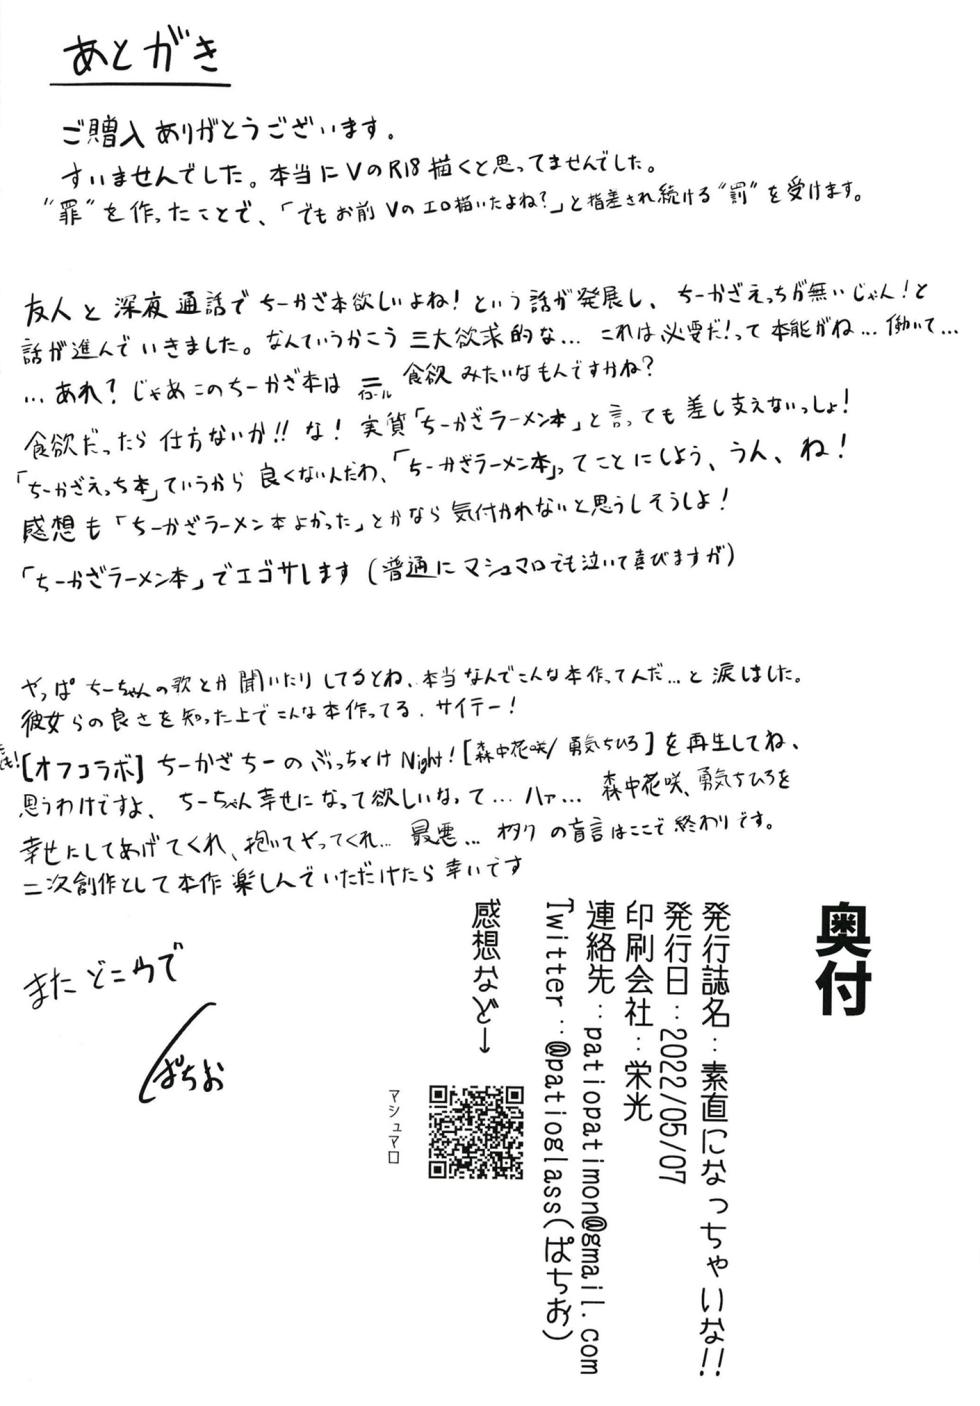 あとがき
ご贈入ありがとうございます。
すいませんでした。本当にVのR18描くと思ってませんでした。
“罪”を作ったことで、「でもお前Vのエロ描いたよね？」と指差され続ける“罰”を受けます。
友人と深夜通話でちーかざ本欲しいよね！という話が発展し、ちーかざえっちが無いじゃん！と
話が進んでいきました。なんていうかこう三大欲求的な… これは必要だ！って本能がね…働いて…
…あれ？じゃあこのちーかざ本は＝イコール食欲みたいなもんですかね？
食欲だったら仕方ないか!!な！実質「ちーかざラーメン本」と言っても差し支えないっしょ！
「ちーかざえっち本」ていうから良くないんだわ、「ちーかざラーメン本」ってことにしよう、うん、ね！
感想も「ちーかざラーメン本よかった」とかなら気付かれないと思うしそうしよ！
「ちーかざラーメン本」でエゴサします（普通にマシュマロでも泣いて喜びますが）
やっぱちーちゃんの歌とか聞いたりしてるとね、本当なんでこんな本作ってんだ…と涙しました。
彼女らの良さを知った上でこんな本作ってる、サイテー！
[オフコラボ] ちーかざちーのぶっちゃけNight！[森中花咲/勇気ちひろ]を再生してね、
思うわけですよ、ちーちゃん幸せになって欲しいなって…ハァ… 森中花咲、勇気ちひろを
幸せにしてあげてくれ、抱いてやってくれ… 最悪… オタクの盲言はここで終わりです。
二次創作として本作楽しんでいただけたら幸いです
またどこかで
ぱちお
奥付
発行誌名：素直になっちゃいな!!
発行日：2022/05/07
印刷会社：栄光
連絡先：patiopatimon@gmail.com
Twitter：@patioglass(ぱちお)
感想など→
マシュマロ